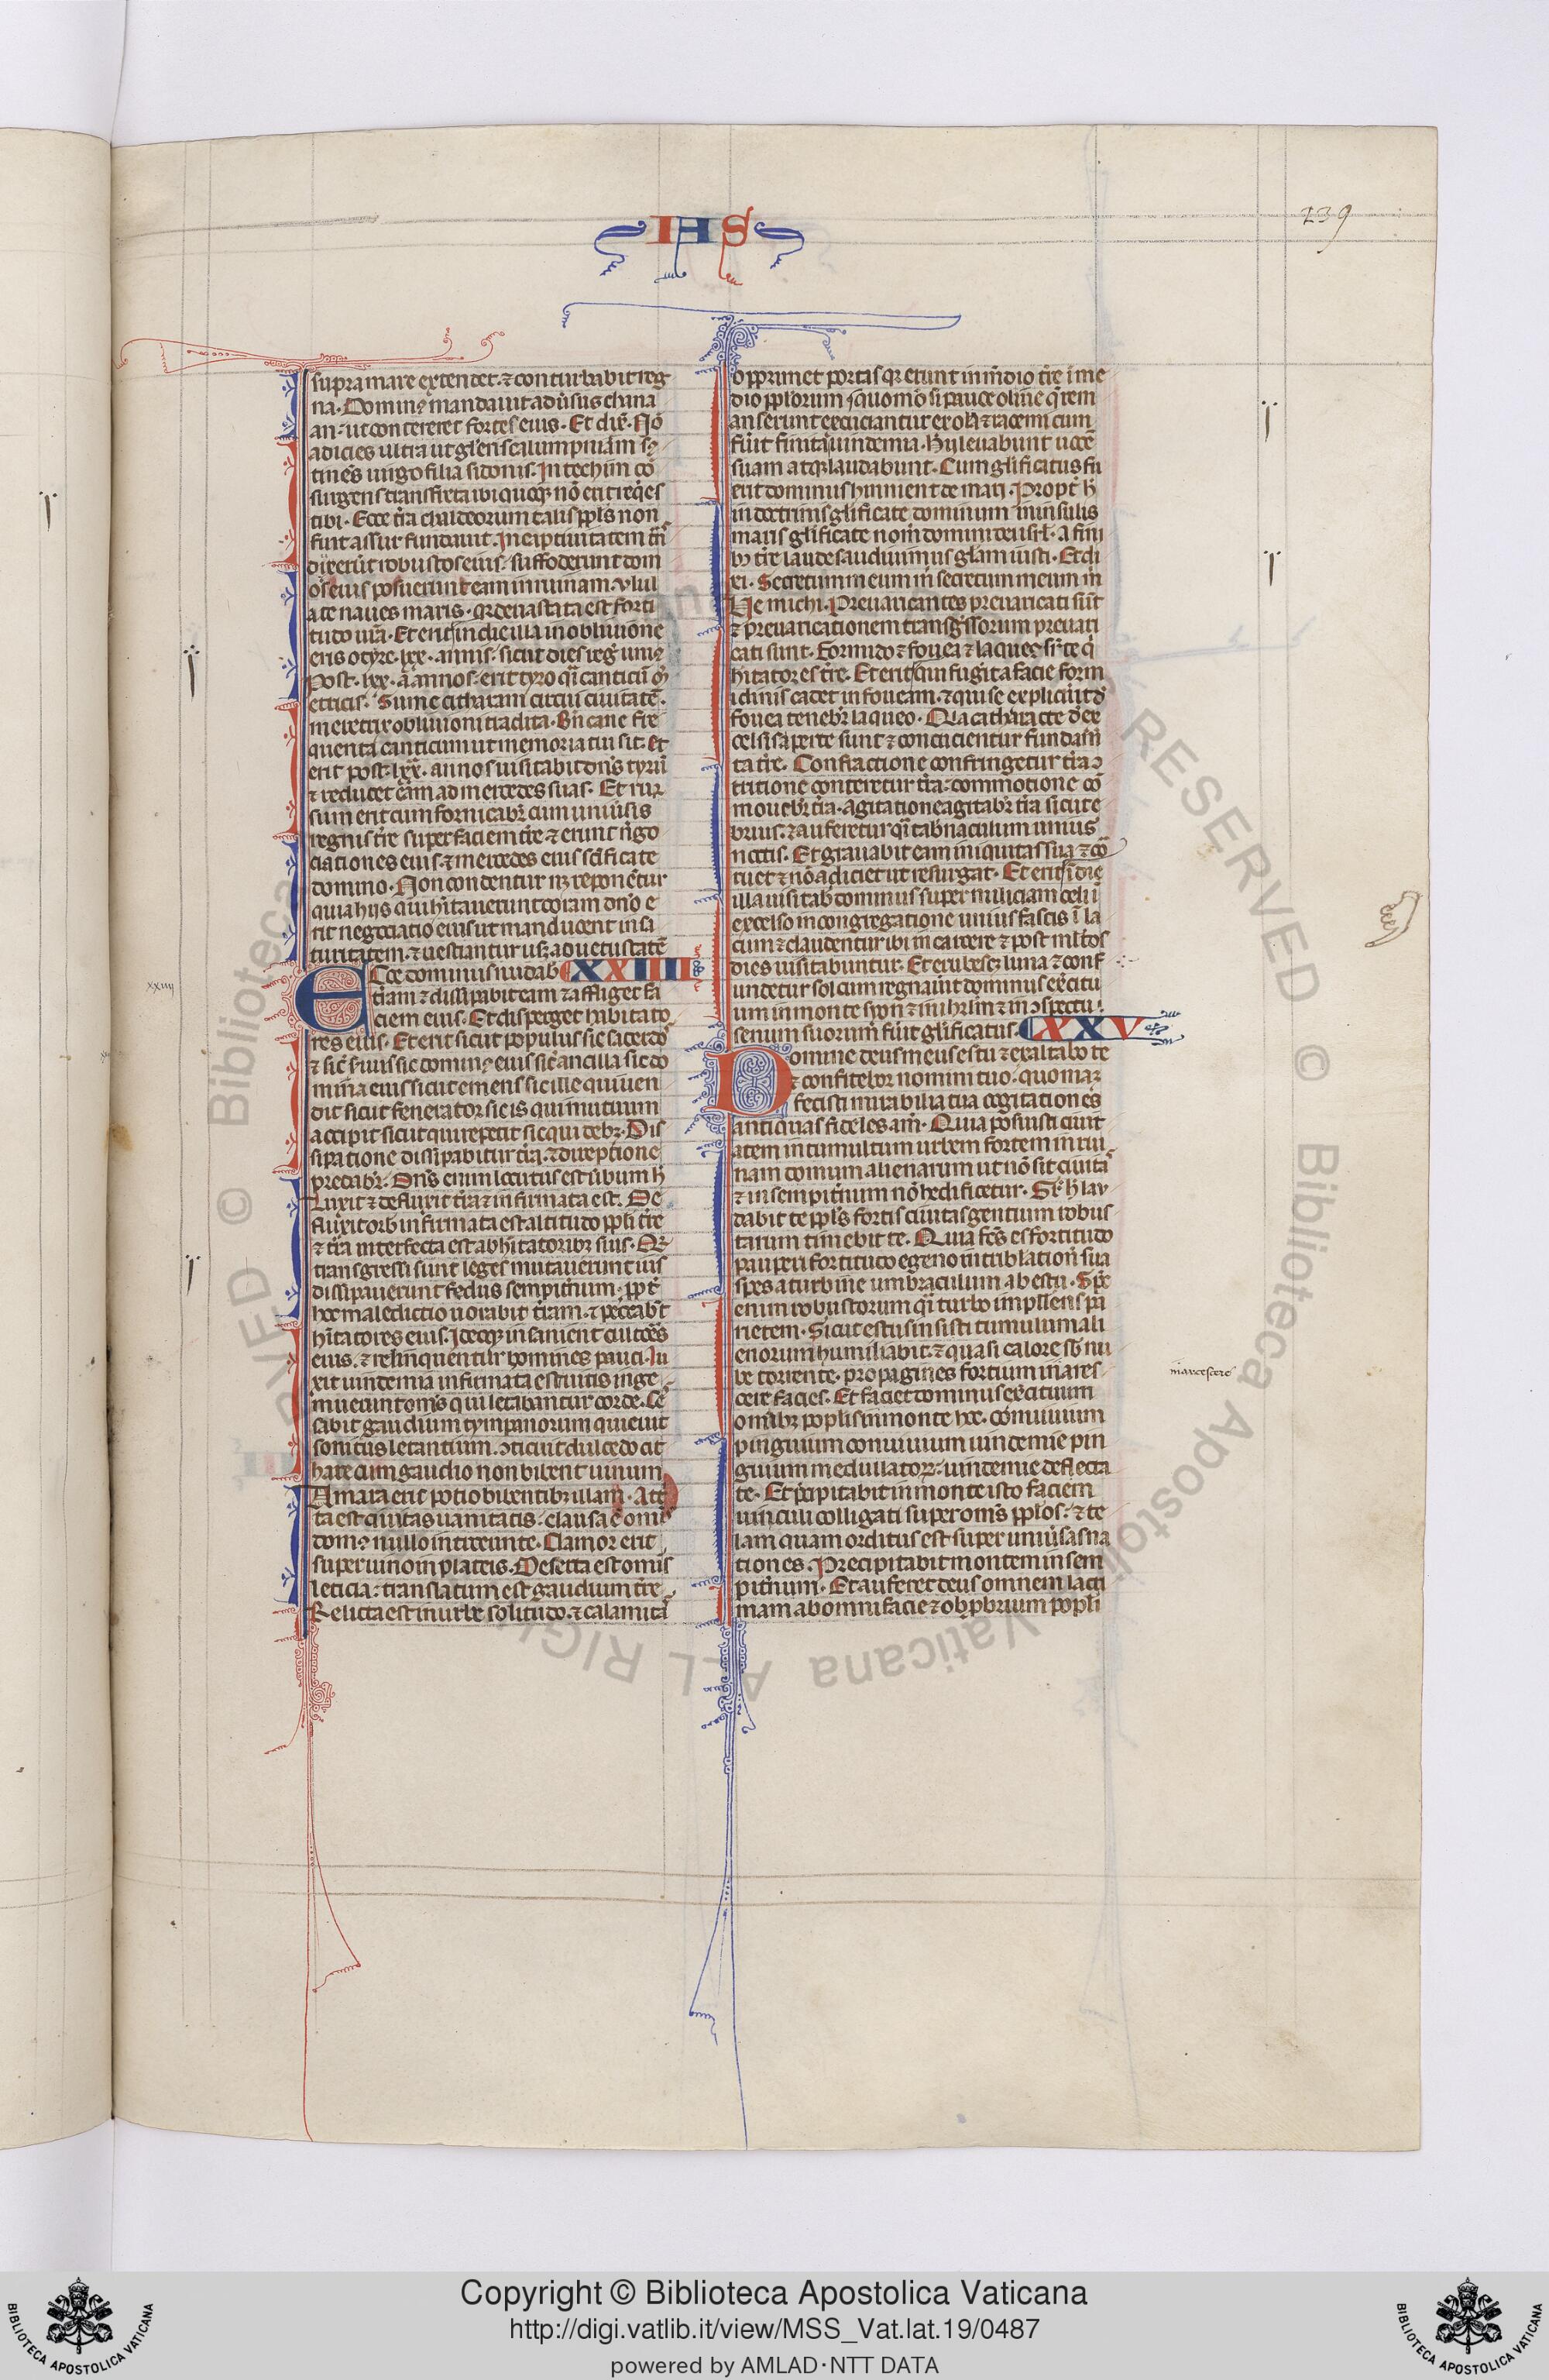 IHS
239
supra mare extendet. ⁊ conturbabit reg
na. Dominꝰ mandauit adu̾sus chana
an: ut contereret fortes eius. Et dix̾. Nō
adicies ultra ut gl̾eris calumpniam sꝰ
tines uirgo filia sidonis. In techim cō
surgens transfreta ibi quoqꝫ nō erit reqͥes
tibi. Ecce tr̄a chaldeorum talis ppl̄s non
fuit assur fundauit. In captiuitatem tn̄
duxer̄ut robustos eius. suffoderunt dom
os eius posuerunt eam in ruinam. Ulul
ate naues maris. qr deuastata est forti
tudo ur̄a. Et erit in die illa in obliuione
eris o tyre. lxx. annis. sicut dies reg̾ uniꝰ
Post. lxx. a̅ annos. erit tyro qͣi canticū m̾
etricis. Sume citharam circui ciuitatē.
meretrix obliuioni tradita. Bn̄ cane fre
quenta canticum ut memoria tui sit. et
erit post. lxx. annos uisitabit dn̄s tyrū
⁊ reducet eam ad mercedes suas. Et rur
sum erit cum fornicabr̾ cum uniu̾sis
regnis tr̄e super faciem tr̄e ⁊ erunt n̾go
ciationes eius ⁊ mercedes eius sc̄ificate
domino. Non condentur nqꝫ reponētur
quia hijs qui hītauerunt coram dn̄o e
rit negociatio eius ut manducent in sa
turitatem. ⁊ uestiantur usqꝫ ad uetustatē
Ecce dominus nudab XXIIII
xxiiij
tr̄am ⁊ dissipabit eam ⁊ affliget fa
ciem eius. Et disperget habitato
res eius. Et erit sicut populus sic sacerdo
⁊ sic̄ s̾uus sic dominꝰ eius sic̄ ancilla sic do
mina eius sicut emens sic ille qui uen
dit sicut fenerator sic is qui mutuum
accipit sicut qui repetit sic qui debꝫ. Dis
sipatione dissipabitur tr̄a. ⁊ direptione
predabr̾. Dn̄s enim locutus est u̾bum h̾
Luxit ⁊ defluxit tr̄a ⁊ infirmata est. De
fluxit orb̾ infirmata est altitudo ppl̄i tr̄e
⁊ tr̄a interfecta est ab hītatoribꝫ suis. Qr
transgressi sunt leges mutauerunt ius
dissipauerunt fedus sempit̾num. ppt̾
hoc maledictio uorabit tr̄am. ⁊ peccab̄t
hītatores eius. Ideoqꝫ insanient cultōes
eius. ⁊ relinquentur homines pauci. lu
xit uindemia infirmata est uitis inge
muerunt om̄s qui letabantur corde. Ce
sabit gaudium tympanorum quieuit
sonitus letantium. ↄticuit dulcedo cit
hare cum gaudio non bibent uinum
Amara erit potio bibentibꝫ illam. Att̾
ta est ciuitas uanitatis. clausa ē omīs
domꝰ nullo introeunte. Clamor erit
super uino in plateis. Deserta est omīs
leticia: translatum est gaudium tr̄e
Relicta est in urbe solitudo. ⁊ calamita
opprimet portas qr erunt in m̄dio tr̄e ī me
dio ppl̄orum quomō si pauce oliue q̄ rem
anserunt excuciantur ex olꝫ ⁊ racemi cum
fūit finita uindemia. Hij leuabunt uocē
suam atqꝫ laudabunt. Cum gl̄ificatus fu
erit dominus hinnient de mari. Propt̾ h̾
in doctrinis gl̄ificate dominum in insulis
maris gl̄ificate nom̄ domini dei isrl̄. a fini
bꝫ tr̄e laudes audiuimus gl̄am iusti. Et di
xi. Secretum meum m̄ secretum meum m̄
Ve michi. Preuaricantes preuaricati sūt
⁊ preuaricationem transg̾ssorum preuari
cati sunt. Formido ⁊ fouea ⁊ laqueꝰ sr̄ te q̄
hītator es tr̄e. Et erit qui fug̾it a facie form
idinis cadet in foueam. ⁊ qui se explicūit d̾
fouea tenebr̾ laqueo. Quia catharacte d̾ ex
celsis aperte sunt ⁊ concucientur fundam̄
ta tr̄e. Confractione confringetur tr̄a ↄ
tritione conteretur tr̄a: commotione cō
mouebr̾ tr̄a. agitatione agitabr̾ tr̄a sicut e
brius. ⁊ auferetur qͣi tab̾naculum unius
noctis. Et grauabit eam iniquitas sua ⁊ co
ruet ⁊ nō adiciet ut resurgat. Et erit ī die
illa uisitab̾ dominus super miliciam celi ī
excelso in congregatione unius fascis ī la
cum ⁊ claudentur ibi in carcere ⁊ post ml̄tos
dies uisitabuntur. Et erubescꝫ luna ⁊ conf
undetur sol cum regnauit dominus ex̾citu
um in monte syon ⁊ in ihrl̄m ⁊ in ↄspectu
senum suorum fūit gl̄ificatus. XXV
Domine deus meus es tu ⁊ exaltabo te
⁊ confitebor nomini tuo. quoniaꝫ
fecisti mirabilia tua cogitationes
antiquas fideles am̄. Quia posuisti ciuit
atem in tumultum urbem fortem in rui
nam domum alienarum ut nō sit ciuita
⁊ in sempit̾num nō hedificetur. Sr̄ h̾ lau
dabit te ppl̄s fortis ciuitas gentium robus
tarum timebit te. Quia fc̄s es fortitudo
pauperi fortitudo egeno in tribulation̄ sua
spes a turbine umbraculum ab estu. Sp̄c
enim robustorum qͣi turbo impll̄ens pa
rietem. Sicut estus in sisti tumulum ali
enorum humiliabit. ⁊ quasi calore sb̄ nu
be torrente. propagines fortium inares
marcescere
cere facies. Et faciet dominus ex̾cituum
omībꝫ popl̄is in monte hoc. conuiuium
pinguium conuiuium uindemie pin
guium medullatoꝝ: uindemie defecta
te. Et p̄cipitabit in monte isto faciem
uinculi colligati super om̄s ppl̄os: ⁊ te
lam quam orditus est super uniu̾sas na
tiones. Precipitabit mortem in sem
pit̾num. Et auferet deus omnem lacri
mam ab omni facie ⁊ obp̄brium popl̄i
Copyright © Biblioteca Apostolica Vaticana
http://digi.vatlib.it/view/MSS_Vat.lat.19/0487
powered by AMLAD·NTT DATA
BIBLIOTECA APOSTOLICA VATICANA
BIBLIOTECA APOSTOLICA VATICANA